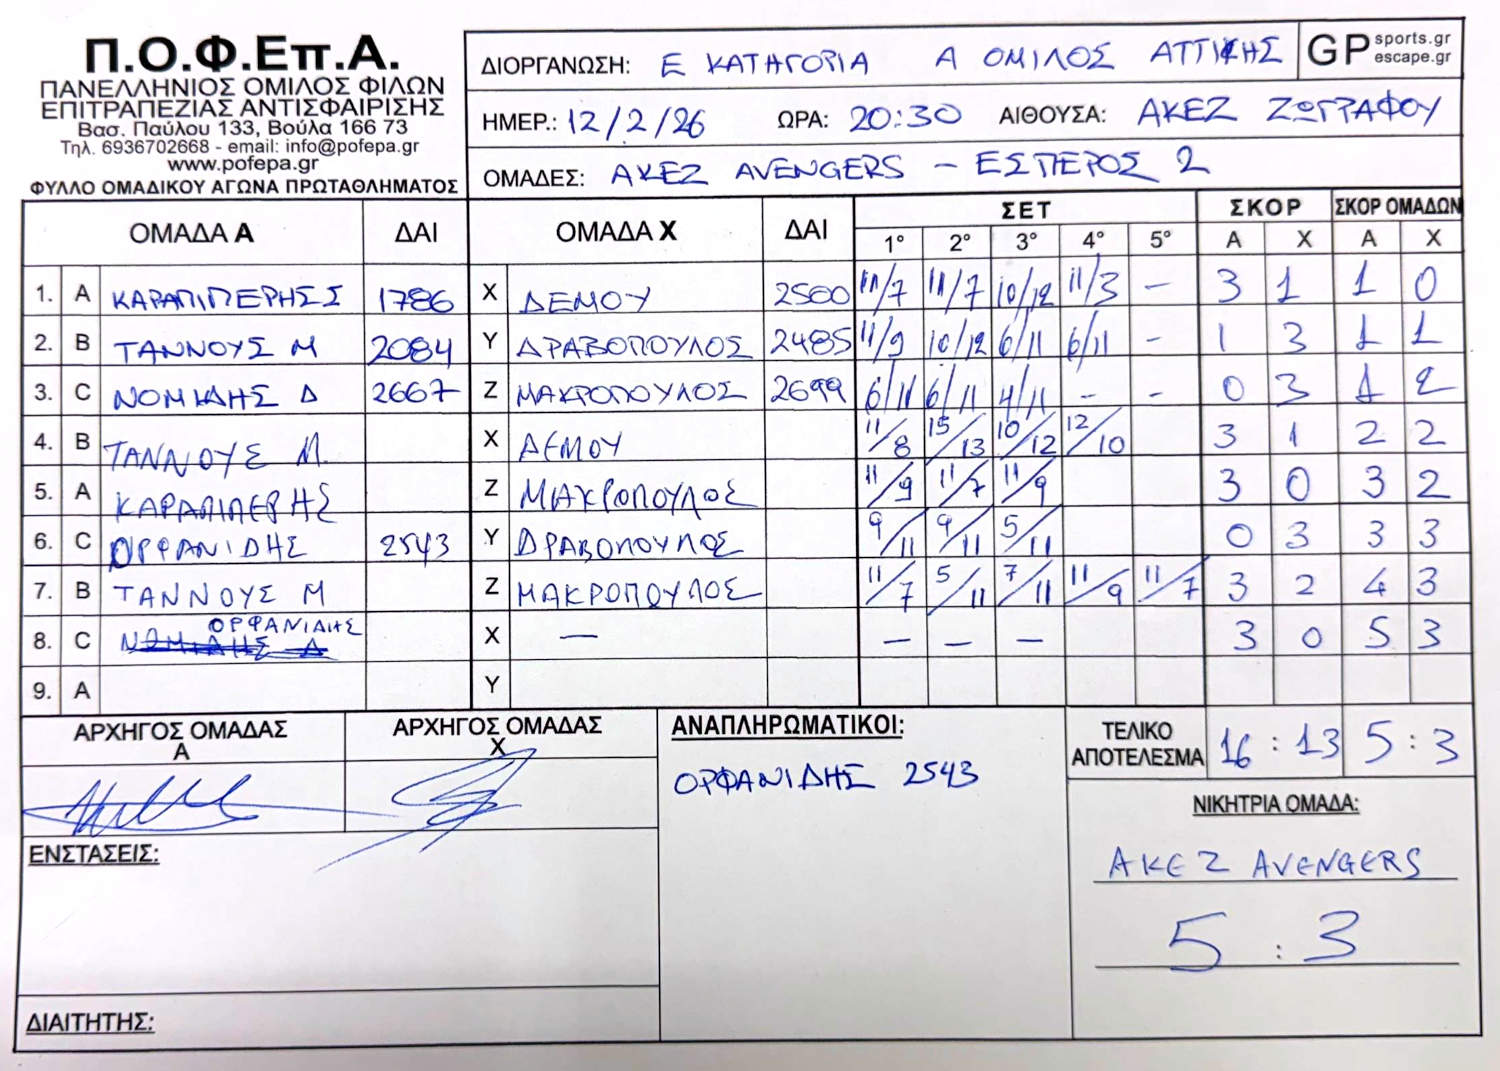 Π.Ο.Φ.Επ.Α.
ΠΑΝΕΛΛΗΝΙΟΣ ΟΜΙΛΟΣ ΦΙΛΩΝ
ΕΠΙΤΡΑΠΕΖΙΑΣ ΑΝΤΙΣΦΑΙΡΙΣΗΣ
Βασ. Παύλου 133, Βούλα 166 73
Τηλ. 6936702668 - email: info@pofepa.gr
www.pofepa.gr
ΦΥΛΛΟ ΟΜΑΔΙΚΟΥ ΑΓΩΝΑ ΠΡΩΤΑΘΛΗΜΑΤΟΣ
ΔΙΟΡΓΑΝΩΣΗ: Ε ΚΑΤΗΓΟΡΙΑ Α ΟΜΙΛΟΣ ΑΤΤΙΚΗΣ
GP sports.gr escape.gr
ΗΜΕΡ.: 12/2/26 ΩΡΑ: 20:30 ΑΙΘΟΥΣΑ: ΑΚΕΖ ΖΩΓΡΑΦΟΥ
ΟΜΑΔΕΣ: ΑΚΕΖ AVENGERS – ΕΣΠΕΡΟΣ 2
ΟΜΑΔΑ Α ΔΑΙ ΟΜΑΔΑ Χ ΔΑΙ ΣΕΤ ΣΚΟΡ ΣΚΟΡ ΟΜΑΔΩΝ
1° 2° 3° 4° 5° Α Χ Α Χ
1. A ΚΑΡΑΠΙΠΕΡΗΣ Σ 1786 X ΔΕΜΟΥ 2500 11/7 11/7 10/12 11/3 – 3 1 1 0
2. B ΤΑΝΝΟΥΣ Μ 2084 Y ΔΡΑΒΟΠΟΥΛΟΣ 2485 11/9 10/12 6/11 6/11 – 1 3 1 1
3. C ΝΟΜΙΔΗΣ Δ 2667 Z ΜΑΚΡΟΠΟΥΛΟΣ 2699 6/11 6/11 4/11 – – 0 3 1 2
4. B ΤΑΝΝΟΥΣ Μ. X ΔΕΜΟΥ 11/8 15/13 10/12 12/10 3 1 2 2
5. A ΚΑΡΑΠΙΠΕΡΗΣ Z ΜΑΚΡΟΠΟΥΛΟΣ 11/9 11/7 11/9 3 0 3 2
6. C ΟΡΦΑΝΙΔΗΣ 2543 Y ΔΡΑΒΟΠΟΥΛΟΣ 9/11 9/11 5/11 0 3 3 3
7. B ΤΑΝΝΟΥΣ Μ Z ΜΑΚΡΟΠΟΥΛΟΣ 11/7 5/11 7/11 11/9 11/7 3 2 4 3
ΟΡΦΑΝΙΔΗΣ
8. C ΝΟΜΙΔΗΣ Δ X — – – – 3 0 5 3
9. A Y
ΑΡΧΗΓΟΣ ΟΜΑΔΑΣ Α
ΑΡΧΗΓΟΣ ΟΜΑΔΑΣ Χ
ΑΝΑΠΛΗΡΩΜΑΤΙΚΟΙ:
ΟΡΦΑΝΙΔΗΣ 2543
ΤΕΛΙΚΟ ΑΠΟΤΕΛΕΣΜΑ 16 : 13 5 : 3
ΝΙΚΗΤΡΙΑ ΟΜΑΔΑ:
ΑΚΕΖ AVENGERS
5 : 3
ΕΝΣΤΑΣΕΙΣ:
ΔΙΑΙΤΗΤΗΣ: